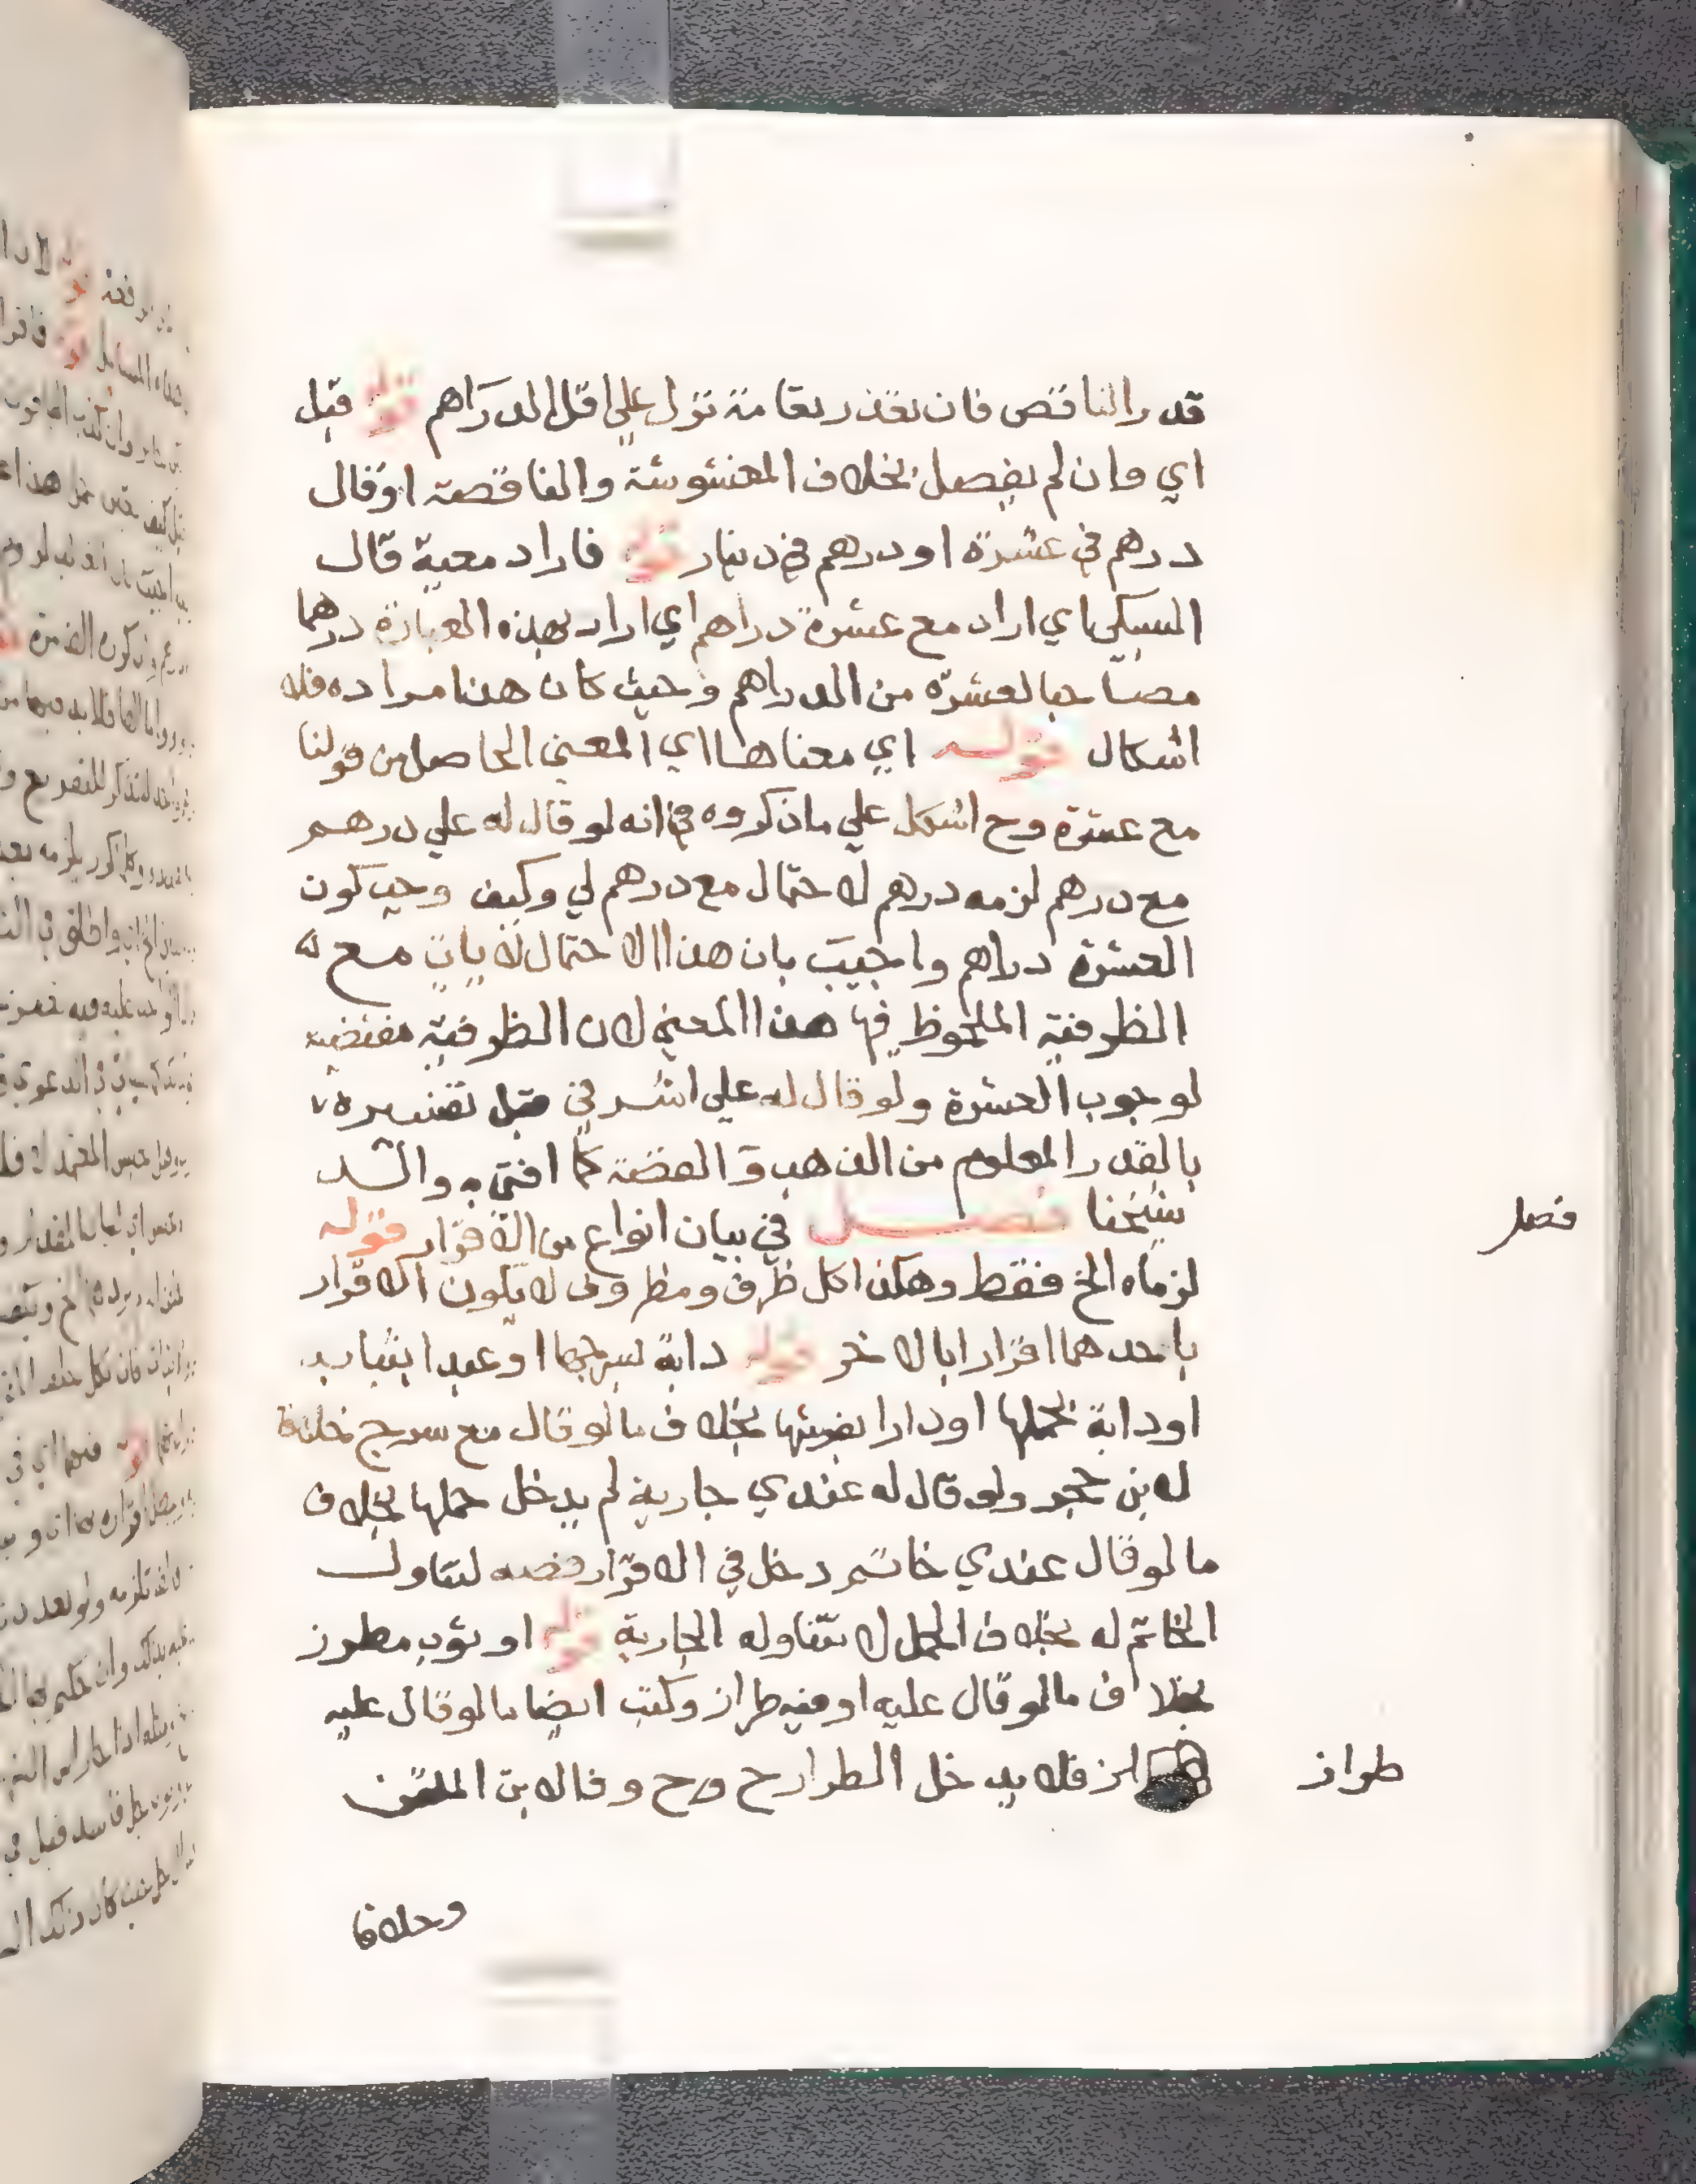 قدر الناقص فان تعذر بقامة نزل علي اقل الدراهم قوله قبل
اي وان لم يفصل بخلاف المغشوشة والناقصة او قال
درهم في عشرة او درهم في دينار قوله فاراد معية قال
السبكي اي اراد مع عشرة دراهم اي اراد بهذه العبارة درهما
مصاحبا لعشرة من الدراهم وحيث كان هذا مراده فلا
اشكال قوله اي معناها اي المعني الحاصل من قولنا
مع عشرة وح اشكل علي ما ذكروه في انه لو قال له علي درهم
مع درهم لزمه درهم لاحتمال مع درهم لي وكيف وجب كون
العشرة دراهم واجيب بان هذا الاحتمال لا يات مع
الظرفية الملحوظ فيها هذا المعني لان الظرفية مقتضية
لوجوب العشرة ولو قال له علي اشرفي قبل تفسيره
بالقدر المعلوم من الذهب والفضة كما افتي به والد
شيخنا فصل في بيان انواع من الاقرار قوله
لزماه الخ فقط وهكذا كل ظرف ومظروف لا يكون الاقرار
باحدهما اقرارا بالاخر قوله دابة بسرجها او عبدا بثيابه
او دابة بحملها او دارا بفرشها بخلاف ما لو قال مع سرج خلافا
لابن حجر ولو قال له عندي جارية لم يدخل حملها بخلاف
ما لو قال عندي خاتم دخل في الاقرار فصه لتناول
الخاتم له بخلاف الحمل لا تتناوله الجارية قوله او ثوب مطرز
بخلاف ما لو قال عليه او فيه طراز وكتب ايضا ما لو قال عليه
فلا يدخل الطراز ح وح وقال بن الملقن
وخلافا
فصل
طراز